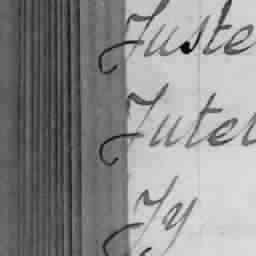 Juste
Jutel
Jy